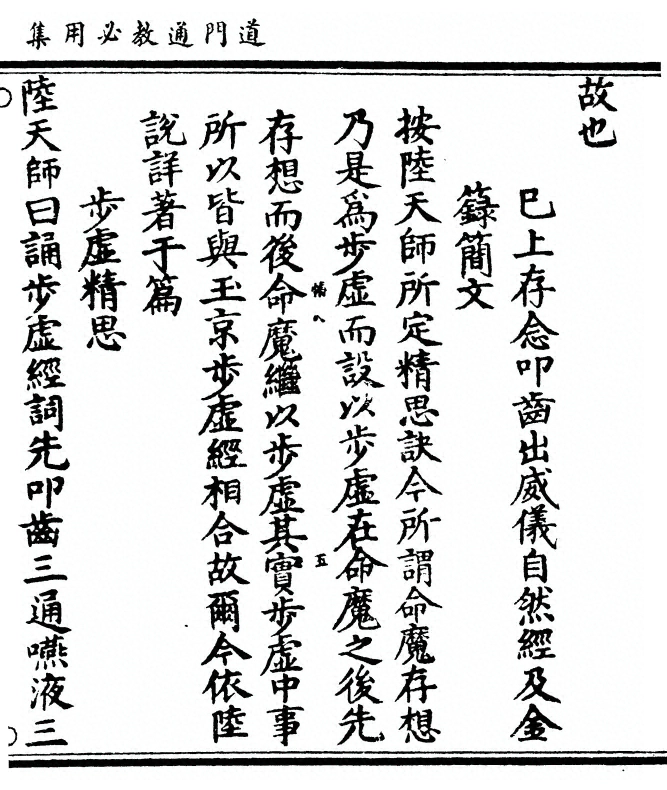 道門通教必用集
故也
已上存念叩齒出威儀自然經及金
籙簡文
按陸天師所定精思訣今所謂命魔存想
乃是爲步虛而設以步虛在命魔之後先
存想而後命魔繼以步虛其實步虛中事
五
所以皆與玉京步虛經相合故爾今依陸
說詳著于篇
步虛精思
陸天師曰誦步虛經詞先叩齒三通嚥液三